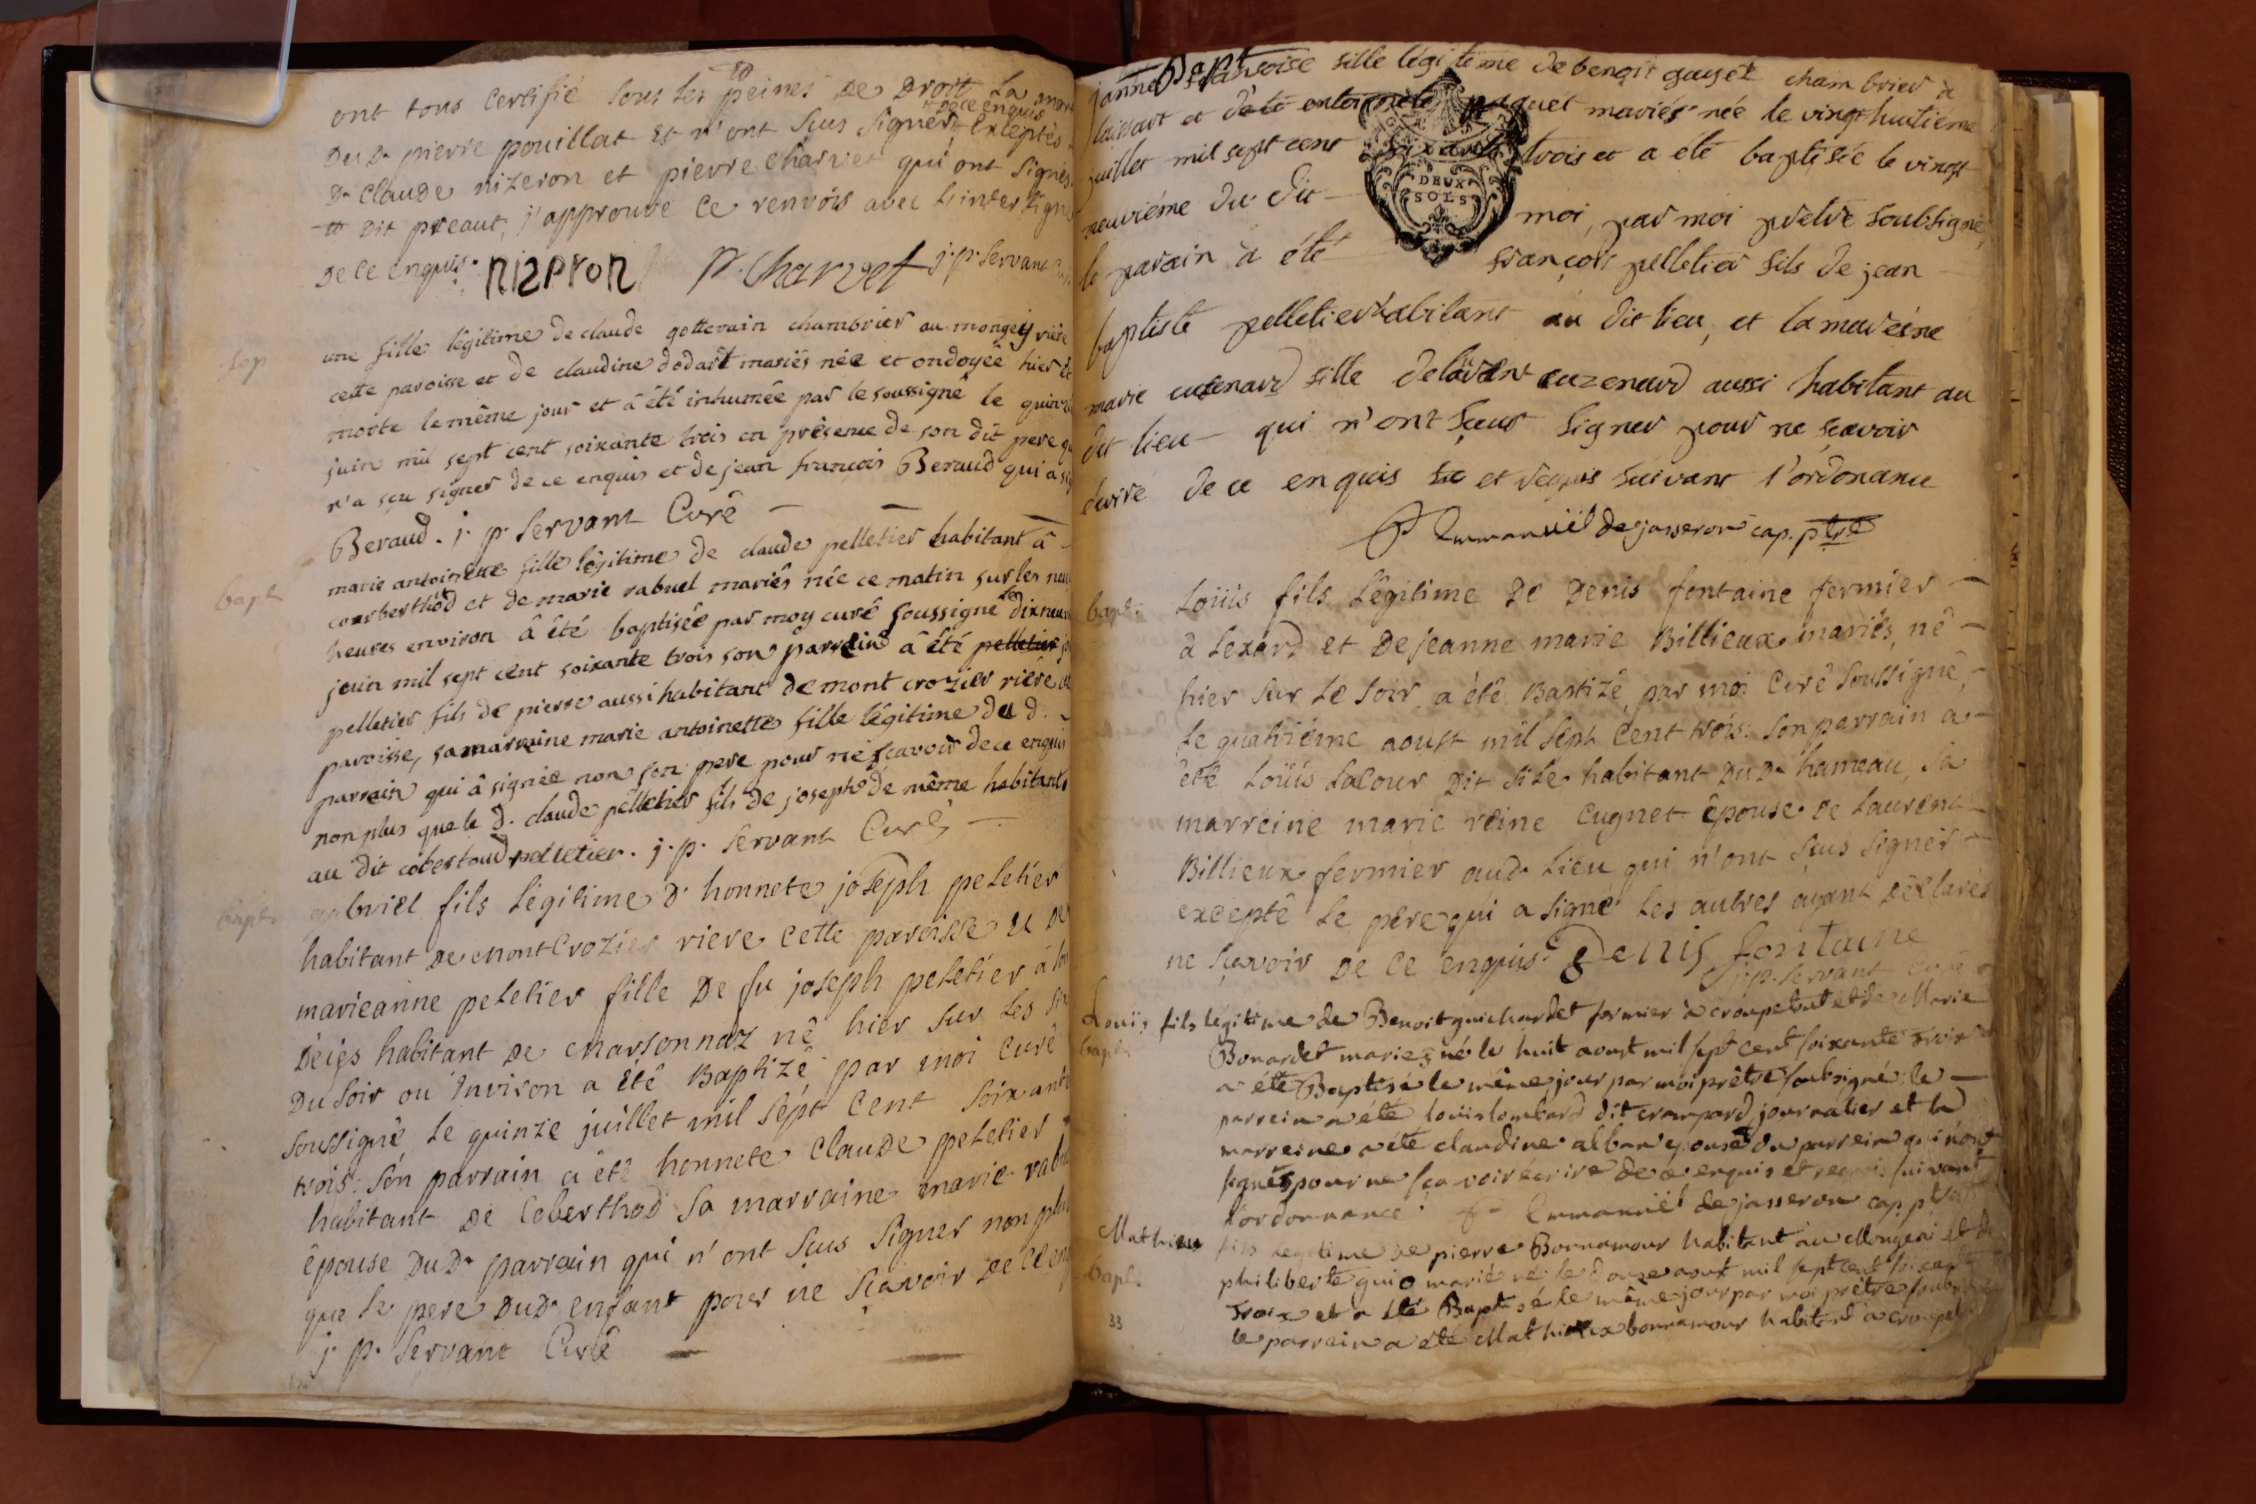 ont tous certifié sous les peines de Droit La
Du dr pierre pouillat et n'ont sus signer, de ce enquis exceptés
Dr Claude nizeron et pierre Charvet qui ont signés
dit preaut, j'approuve ce renvois avec l'interligne
De ce enquis. nizeron P. Charvet j. p. Servant
Sep.
une fille légitime de claude gotterain chambrier au mongey riere
cette paroisse et de claudine dodart mariés née et ondoyée hier et
morte le même jour et â été inhumée par le soussigné le quinze
juin mil sept cent soixante trois en présence de son dit pere qui
n'a sçu signer de ce enquis et de jean françois Beraud qui a
Beraud. j. p. Servant Curé
bapt.
marie antoinette fille légitime de claude pelletier habitant â
courberthod et de marie rabuel mariés née ce matin sur les neuf
heures environ â été baptisée par moy curé soussigné le dixneuf
juin mil sept cent soixante trois son parrein â été pelletier
pelletier fils de pierre aussi habitant de mont crozier riere
paroisse, sa marraine marie antoinette fille légitime du d.
parrain qui â signée non son pere pour ne sçavoir de ce enquis
non plus que le d. claude pelletier fils de joseph de même habitants
au dit coberthoud pelletier. j. p. Servant Curé
bapt.
gabriel fils légitime d'honnete joseph peletier
habitant de montCrozier riere cette paroisse et de
marieanne peletier fille De fu joseph peletier
habitant de marsonnaz né hier sur les
Du soir ou environ a été Baptizé par moi Curé
soussigné le quinze juillet mil sept Cent soixante
trois. Son parrain a été honnete Claude peletier
habitant de Coberthod sa marraine marie rabuel
épouse Du Dr parrain qui n'ont sus signer non plus
que le pere Du Dr enfant pour ne sçavoir de ce
j. p. Servant Curé
Bapt
janne françoise fille légitime de benoit gauget chambrier a
et paquet mariés née le vingt huitieme
juillet mil sept cent soixante trois et a été baptisée le vingt
DEUX SOLS
neuviéme du dit moi, par moi prêtre soubsigné,
le parain a été françois pelletier fils de jean
baptiste pelletier habitant au dit lieu, et la mareine
marie cuzenard fille de cuzenard aussi habitant au
dit lieu qui n'ont sçeus signer pour ne sçavoir
de ce enquis et requis suivant l'ordonance
fr Emmanuël de jasseron cap. ptre
bapt.
Loüis fils légitime de Denis fontaine fermier
a Lexard et De jeanne marie Billieux mariés, né
hier sur le soir, a été Baptizé par moi Curé soussigné,
le quatriéme aoust mil sept Cent trois. Son parrain a
été Loüis Lalour dit habitant Du Dr hameau, Sa
marreine marie reine Cugnet épouse de Laurent
Billieux fermier aud. Lieu qui n'ont sus signer
excepté le pere qui a signé les autres ayant déclarés
ne sçavoir de ce enquis. Denis fontaine
j. p. Servant Curé
Loüis
bapt.
fils légitime de Benoit guichardet fermier à croupetout et de Marie
Bonardet mariez né le huit aoust mil sept cent soixante trois
a été Baptisé le même jour par moi prêtre soubsigné le
parrein a été loüis lombard dit crampard journalier et la
marreine a été claudine alban epouse du parrein qui n'ont
signés pour ne sçavoir écrire de ce enquis et requis suivant
l'ordonnance. fr Emmanuël de jasseron cap. ptre
Mathieu
bapt.
fils légitime de pierre Bonnamour habitant au Mongeai et de
philiberte marié né le aoust mil sept cent soixante
Trois et a été Baptisé le même jour par moi prêtre soub
le parrein a été Mathieux bonnamour habitant à
33